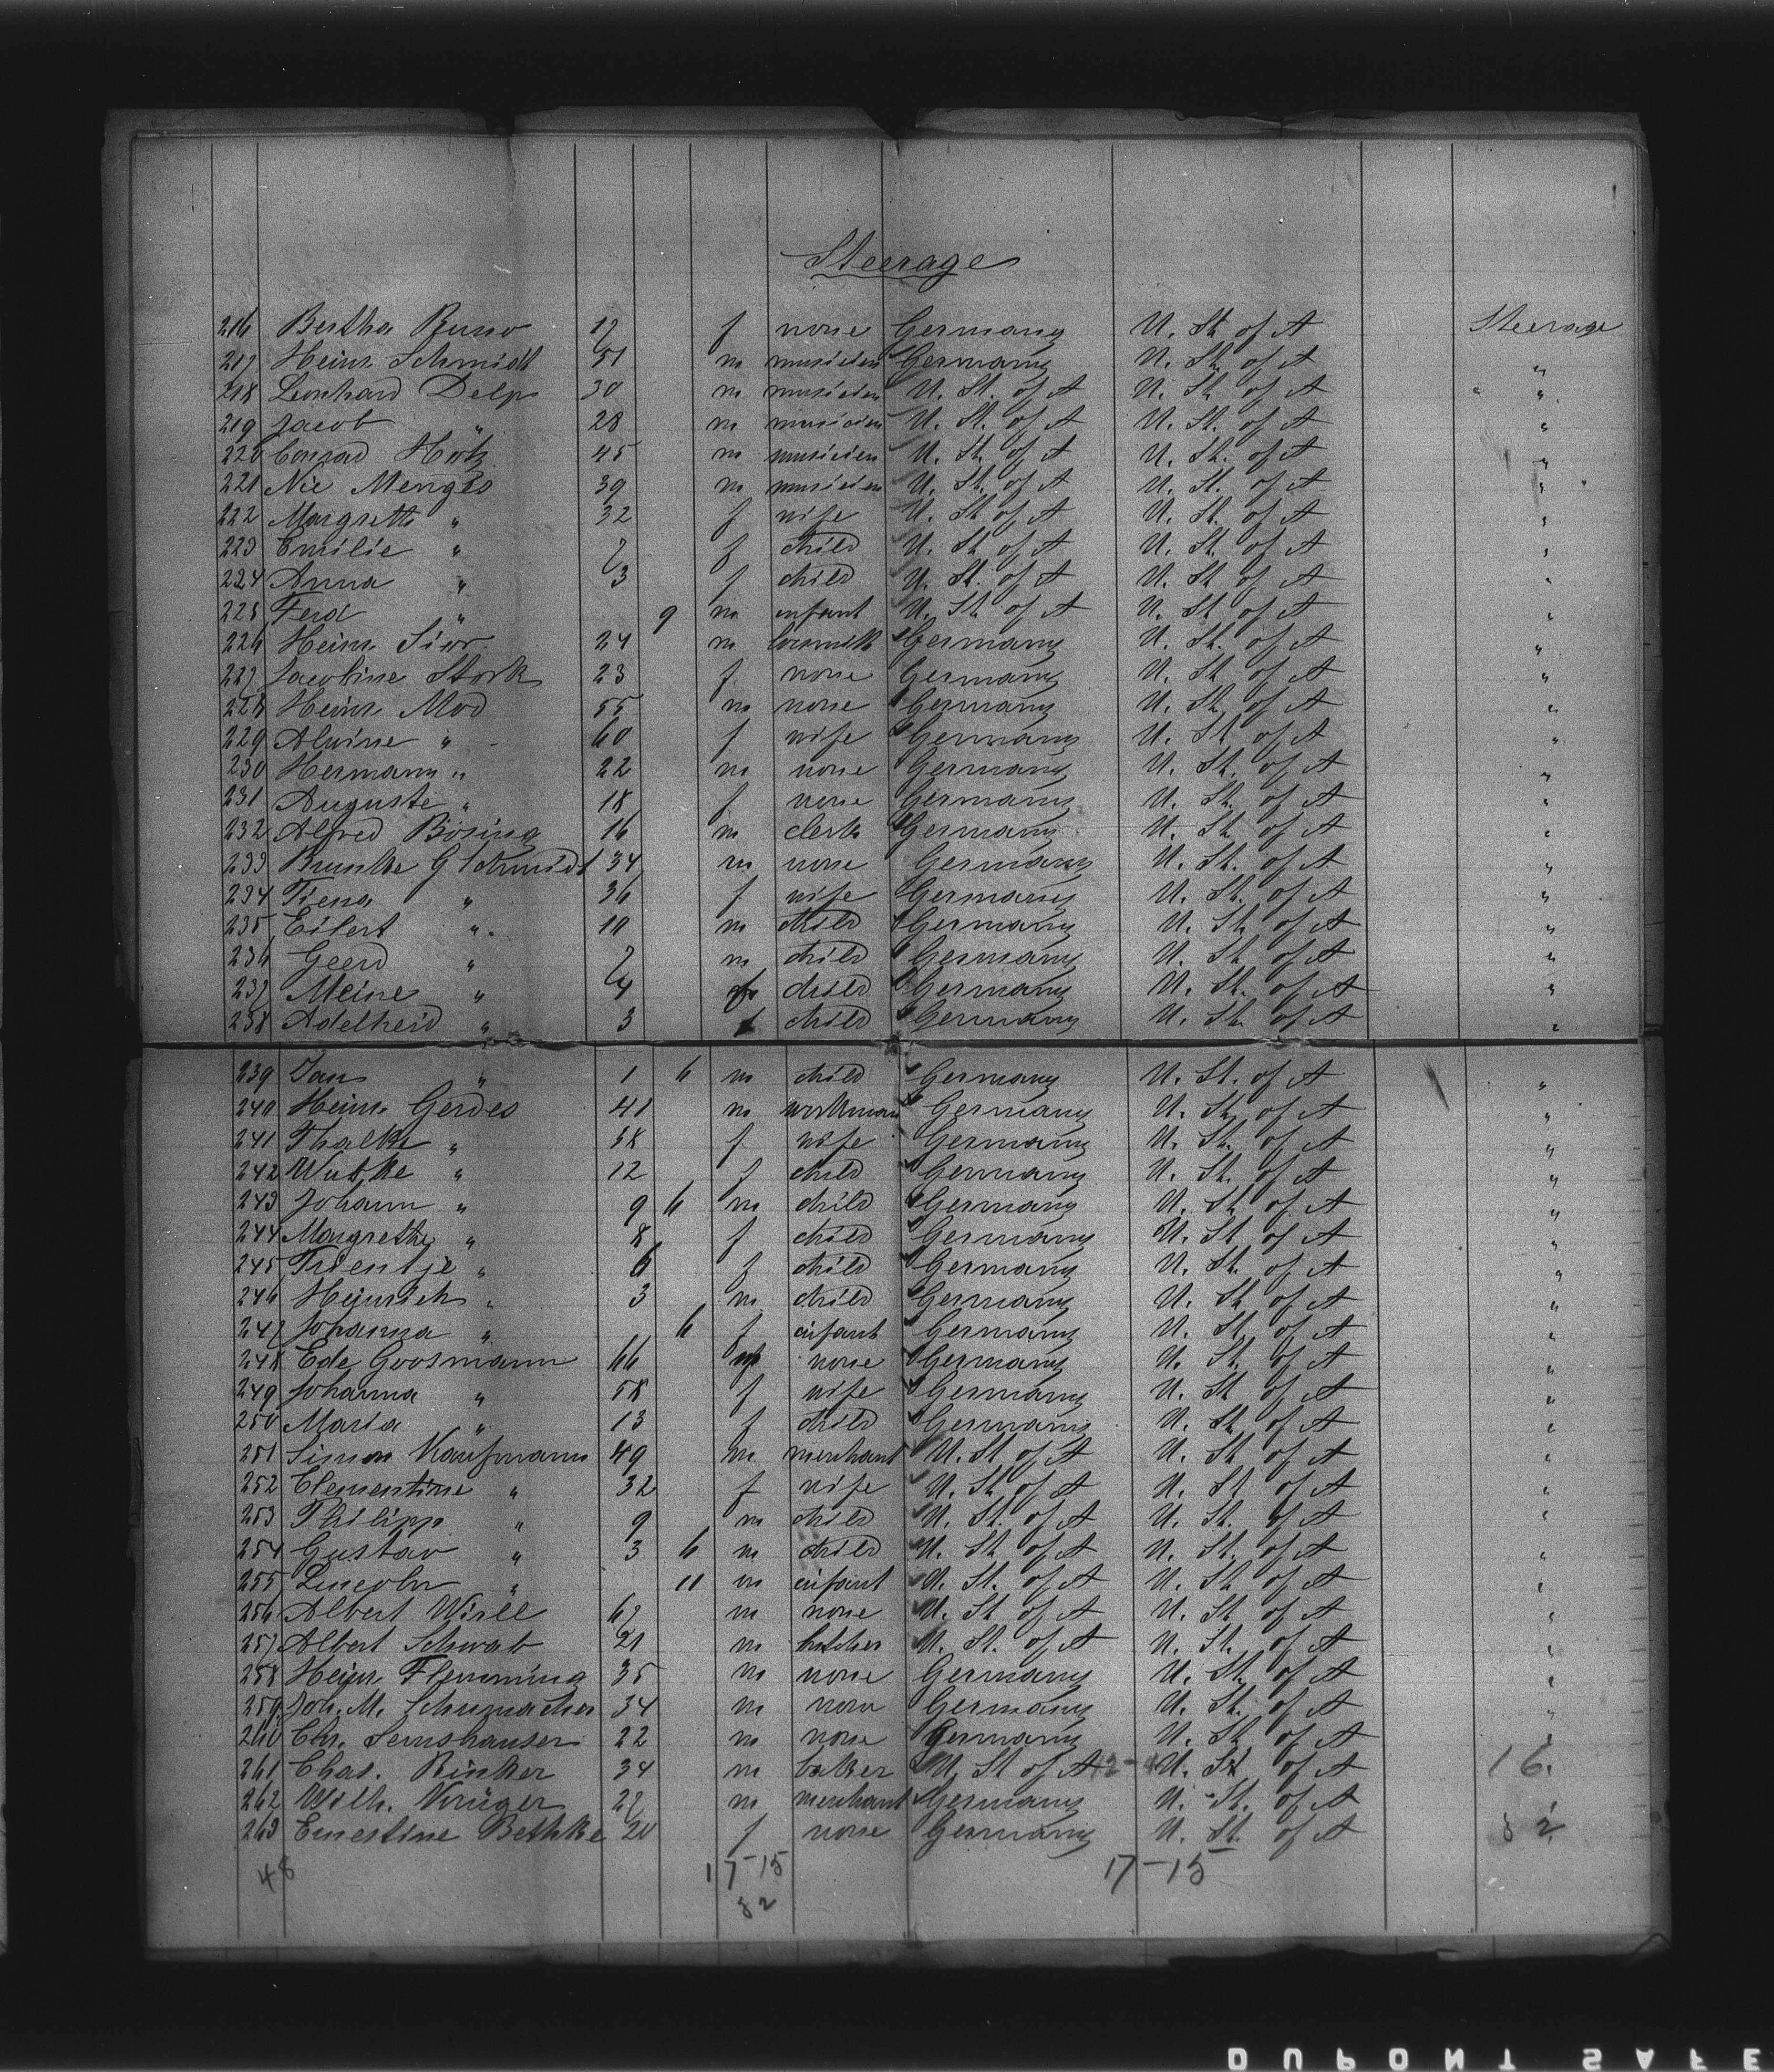 Steerage
216 Bertha Russo 17 f none Germany U. St. of A Steerage
217 Heinr. Schmidt 51 m musicien Germany U. St. of A "
218 Leonhard Delp 30 m musicien U. St. of A U. St. of A "
219 Jacob " 28 m musicien U. St. of A U. St. of A "
220 Conrad Hotz 45 m musicien U. St. of A U. St. of A "
221 Nic Menges 39 m musicien U. St. of A U. St. of A "
222 Margreth " 32 f wife U. St. of A U. St. of A "
223 Emilie " 7 f child U. St. of A U. St. of A "
224 Anna " 3 f child U. St. of A U. St. of A "
225 Ferd " 9 m infant U. St. of A U. St. of A "
226 Heinr. Sior 24 m Germany U. St. of A "
227 Jacobine Stork 23 f none Germany U. St. of A "
228 Heinr. Mod 55 m none Germany U. St. of A "
229 Alwine " 60 f wife Germany U. St. of A "
230 Hermann " 22 m none Germany U. St. of A "
231 Auguste " 18 f none Germany U. St. of A "
232 Alfred Bösing 16 m clerk Germany U. St. of A "
233 Brunke G Schmidt 34 m none Germany U. St. of A "
234 Tiena " 36 f wife Germany U. St. of A "
235 Eilert " 10 m child Germany U. St. of A "
236 Geerd " 7 m child Germany U. St. of A "
237 Meine " 4 child Germany U. St. of A "
238 Adelheid " 3 f child Germany U. St. of A "
239 Jan " 1 6 m child Germany U. St. of A "
240 Heinr. Gerdes 41 m workman Germany U. St. of A "
241 Thalke " 38 f wife Germany U. St. of A "
242 Wubke " 12 f child Germany U. St. of A "
243 Johann " 9 6 m child Germany U. St. of A "
244 Margrethe " 8 f child Germany U. St. of A "
245 Trientje " 6 f child Germany U. St. of A "
246 Heinrich " 3 m child Germany U. St. of A "
247 Johanna " 6 f infant Germany U. St. of A "
248 Ede Goosmann 66 m none Germany U. St. of A "
249 Johanna " 58 f wife Germany U. St. of A "
250 Maria " 13 f child Germany U. St. of A "
251 Simon Kaufmann 49 m merchant U. St. of A U. St. of A "
252 Clementine " 32 f wife U. St. of A U. St. of A "
253 Philipp " 9 m child U. St. of A U. St. of A "
254 Gustav " 3 6 m child U. St. of A U. St. of A "
255 Lincoln " 11 m infant U. St. of A U. St. of A "
256 Albert 67 m none U. St. of A U. St. of A "
257 Albert Schwab 21 m butcher U. St. of A U. St. of A "
258 Heinr. Flemming 35 m none Germany U. St. of A "
259 Joh. M. Schumacher 34 m none Germany U. St. of A "
260 Chr. Semshauser 22 m none Germany U. St. of A "
261 Chas. Rinker 34 m baker U. St. of A U. St. of A 16.
262 Wilh. Krüger 27 m merchant Germany U. St. of A "
263 Ernestine Bethke 20 f none Germany U. St. of A 32
48 17-15 17-15
32
DUPONT SAFE